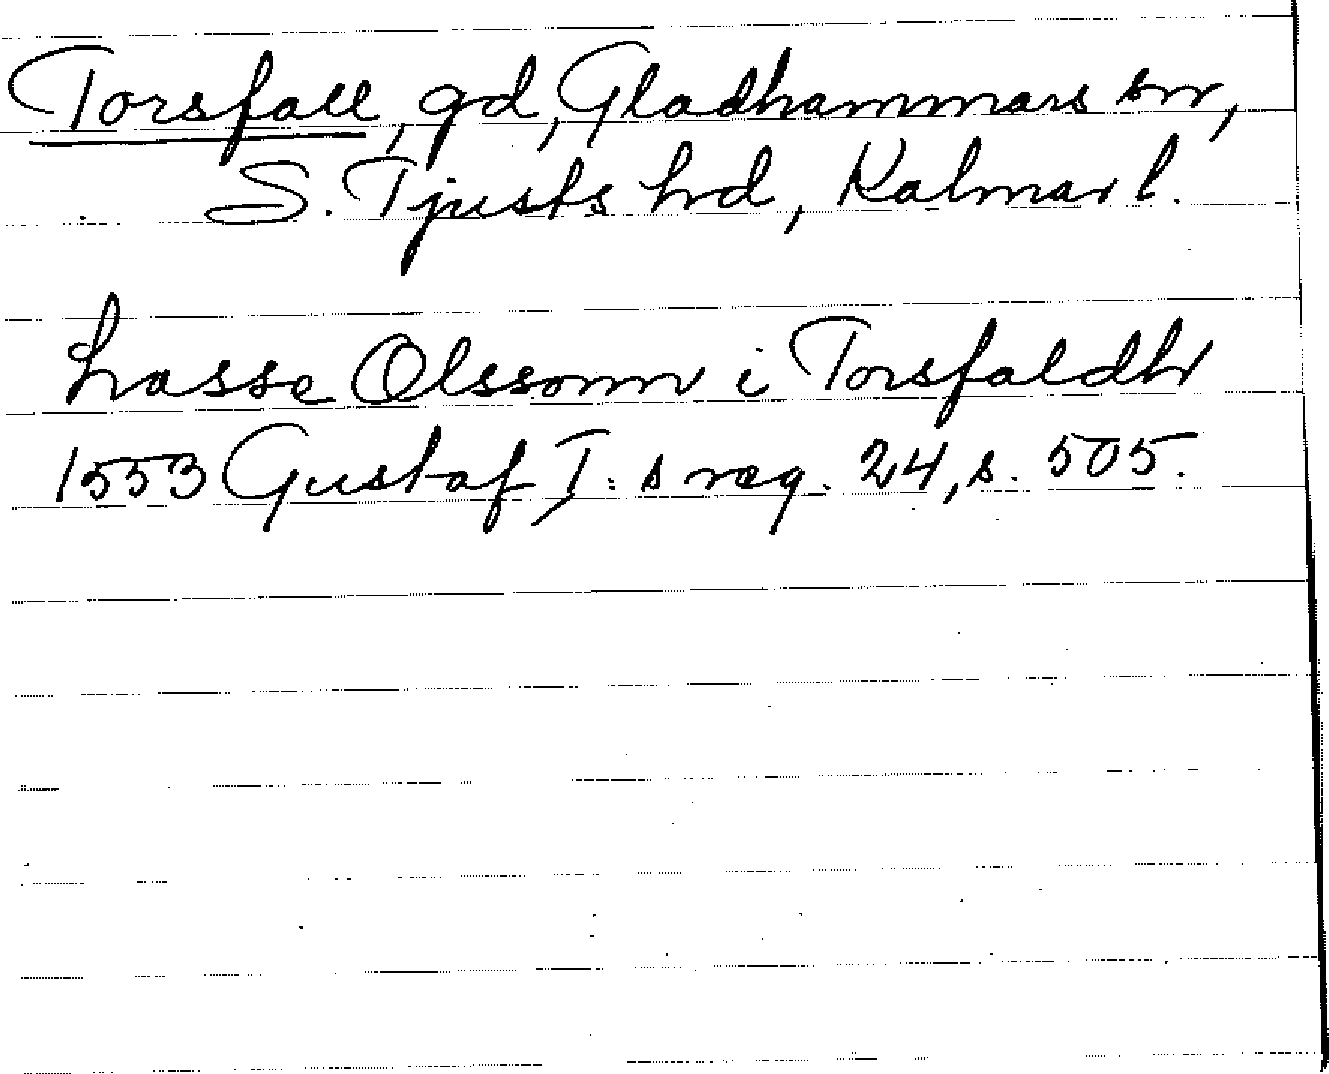 Torsfall, gd, Gladhammars sn,
S. Tjusts hd, Kalmar l.
Lasse Olssonn i Torsfaldh
1553 Gustaf I:s reg. 24, s. 505.